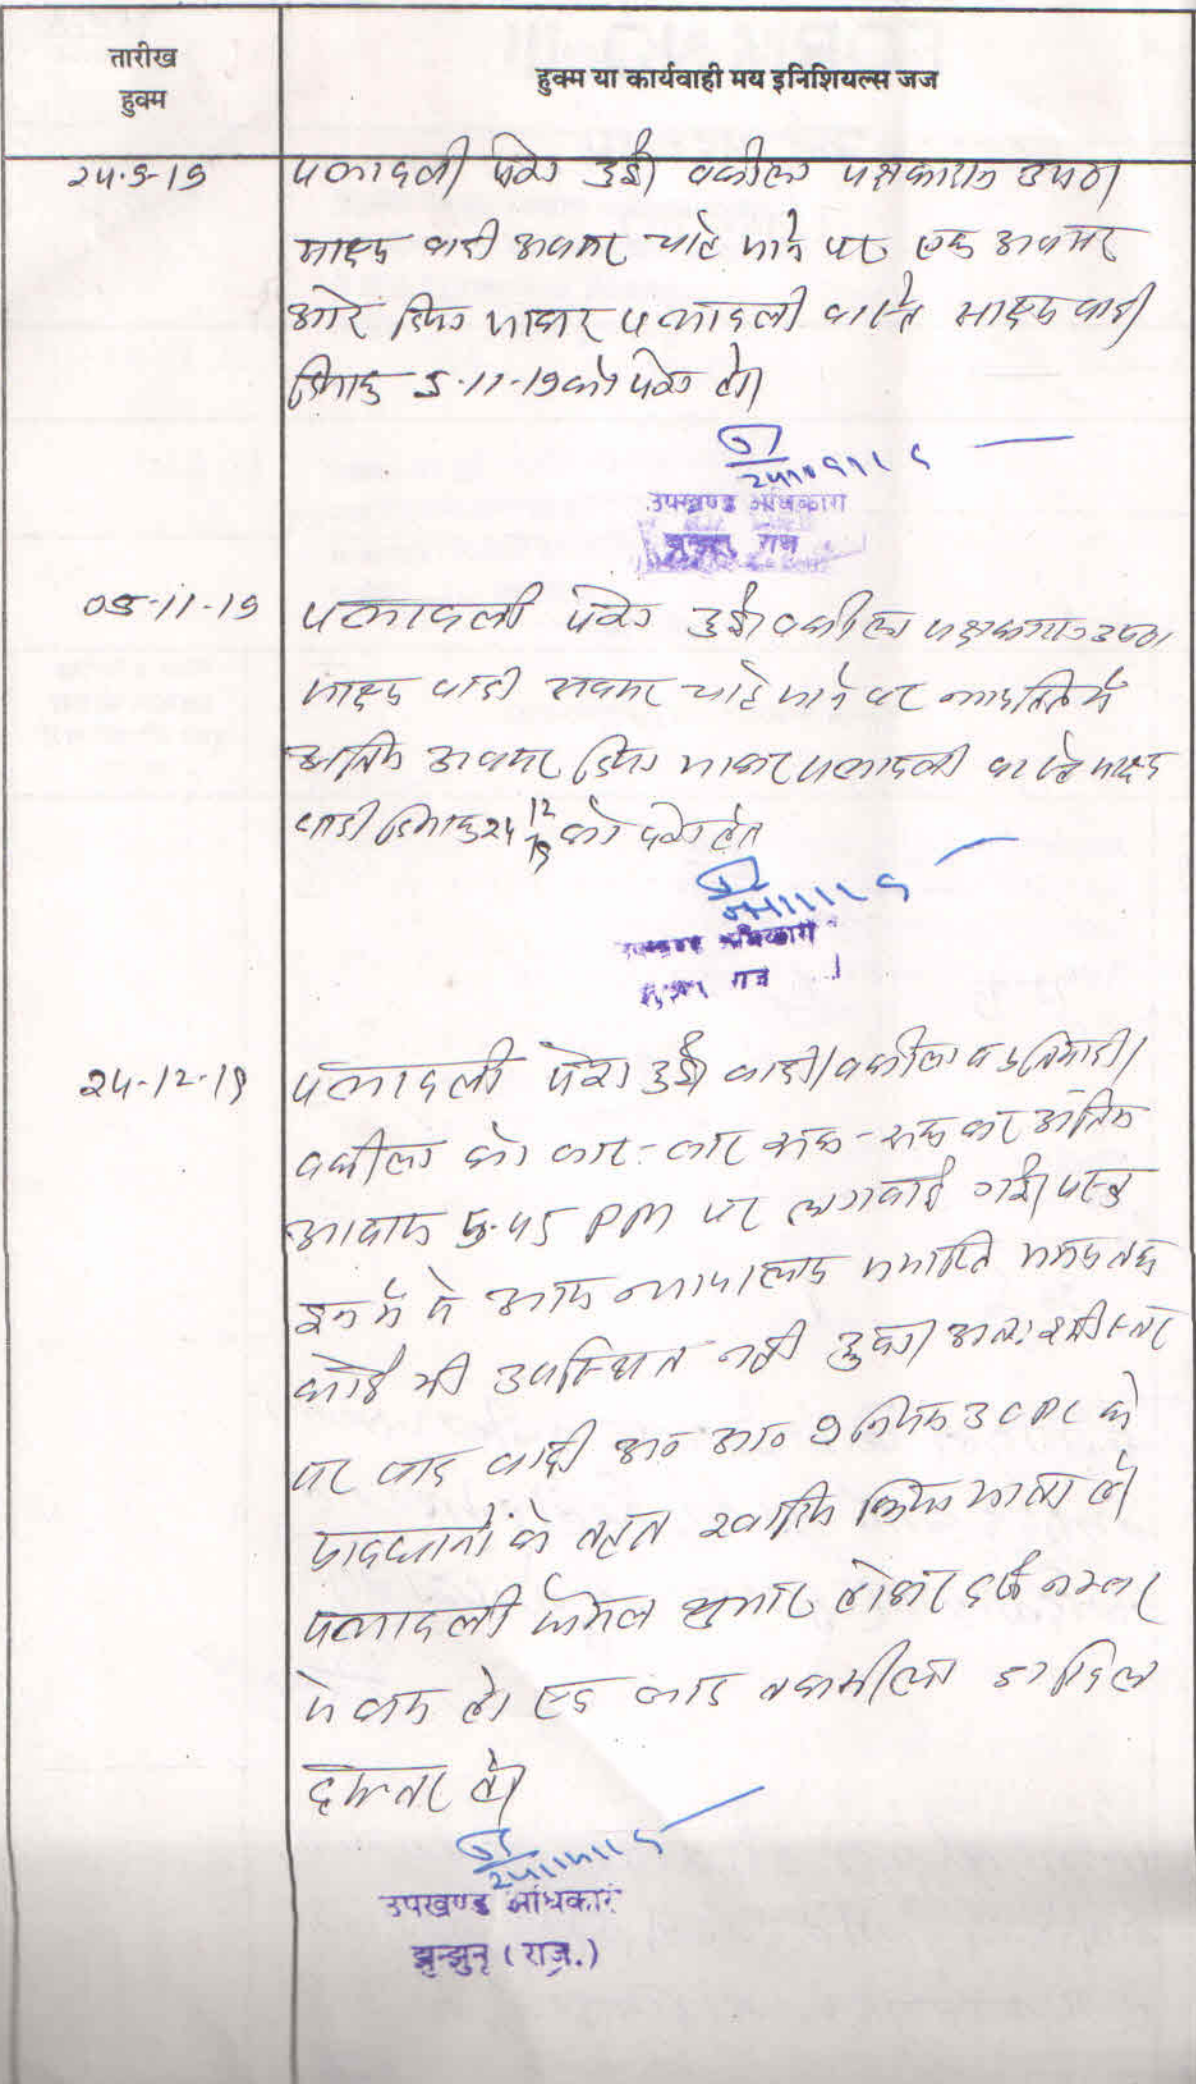 तारीख
हुक्म
हुक्म या कार्यवाही मय इनिशियल्स जज
24-9-19
पत्रावली पेश हुई। वकीला पक्षकारान उप०।
साक्ष्य वादी अवसर चाहे जाने पर एक अवसर
और दिया जाकर पत्रावली वास्ते साक्ष्य वादी
दिनांक 5-11-19 को पेश हो।
उपखण्ड अधिकारी
झुन्झुनू राज
05-11-19
पत्रावली पेश हुई। वकीला पक्षकारान उप०।
साक्ष्य वादी अवसर चाहे जाने पर न्यायहित में
अन्तिम अवसर दिया जाकर पत्रावली वास्ते साक्ष्य
वादी दिनांक 24/12/19 को पेश हो।
उपखण्ड अधिकारी
झुन्झुनू राज
24-12-19
पत्रावली पेश हुई। वादी/वकीला व प्रतिवादी/
वकीला को बार-बार कर अन्तिम
आवाज 5-45 PM पर लगवाई गई। परन्तु
इनमें से आज न्यायालय समाप्ति समय तक
कोई भी उपस्थित नहीं हुआ। अतः इसी स्तर
पर वाद वादी अ० आ० 9 नियम 3 CPC के
प्रावधानों के तहत खारिज किया जाता है।
पत्रावली फैसल शुमार होकर दर्ज नम्बर
से कम हो। बाद तकमील दाखिल
दफ्तर हो।
उपखण्ड अधिकारी
झुन्झुनू (राज.)